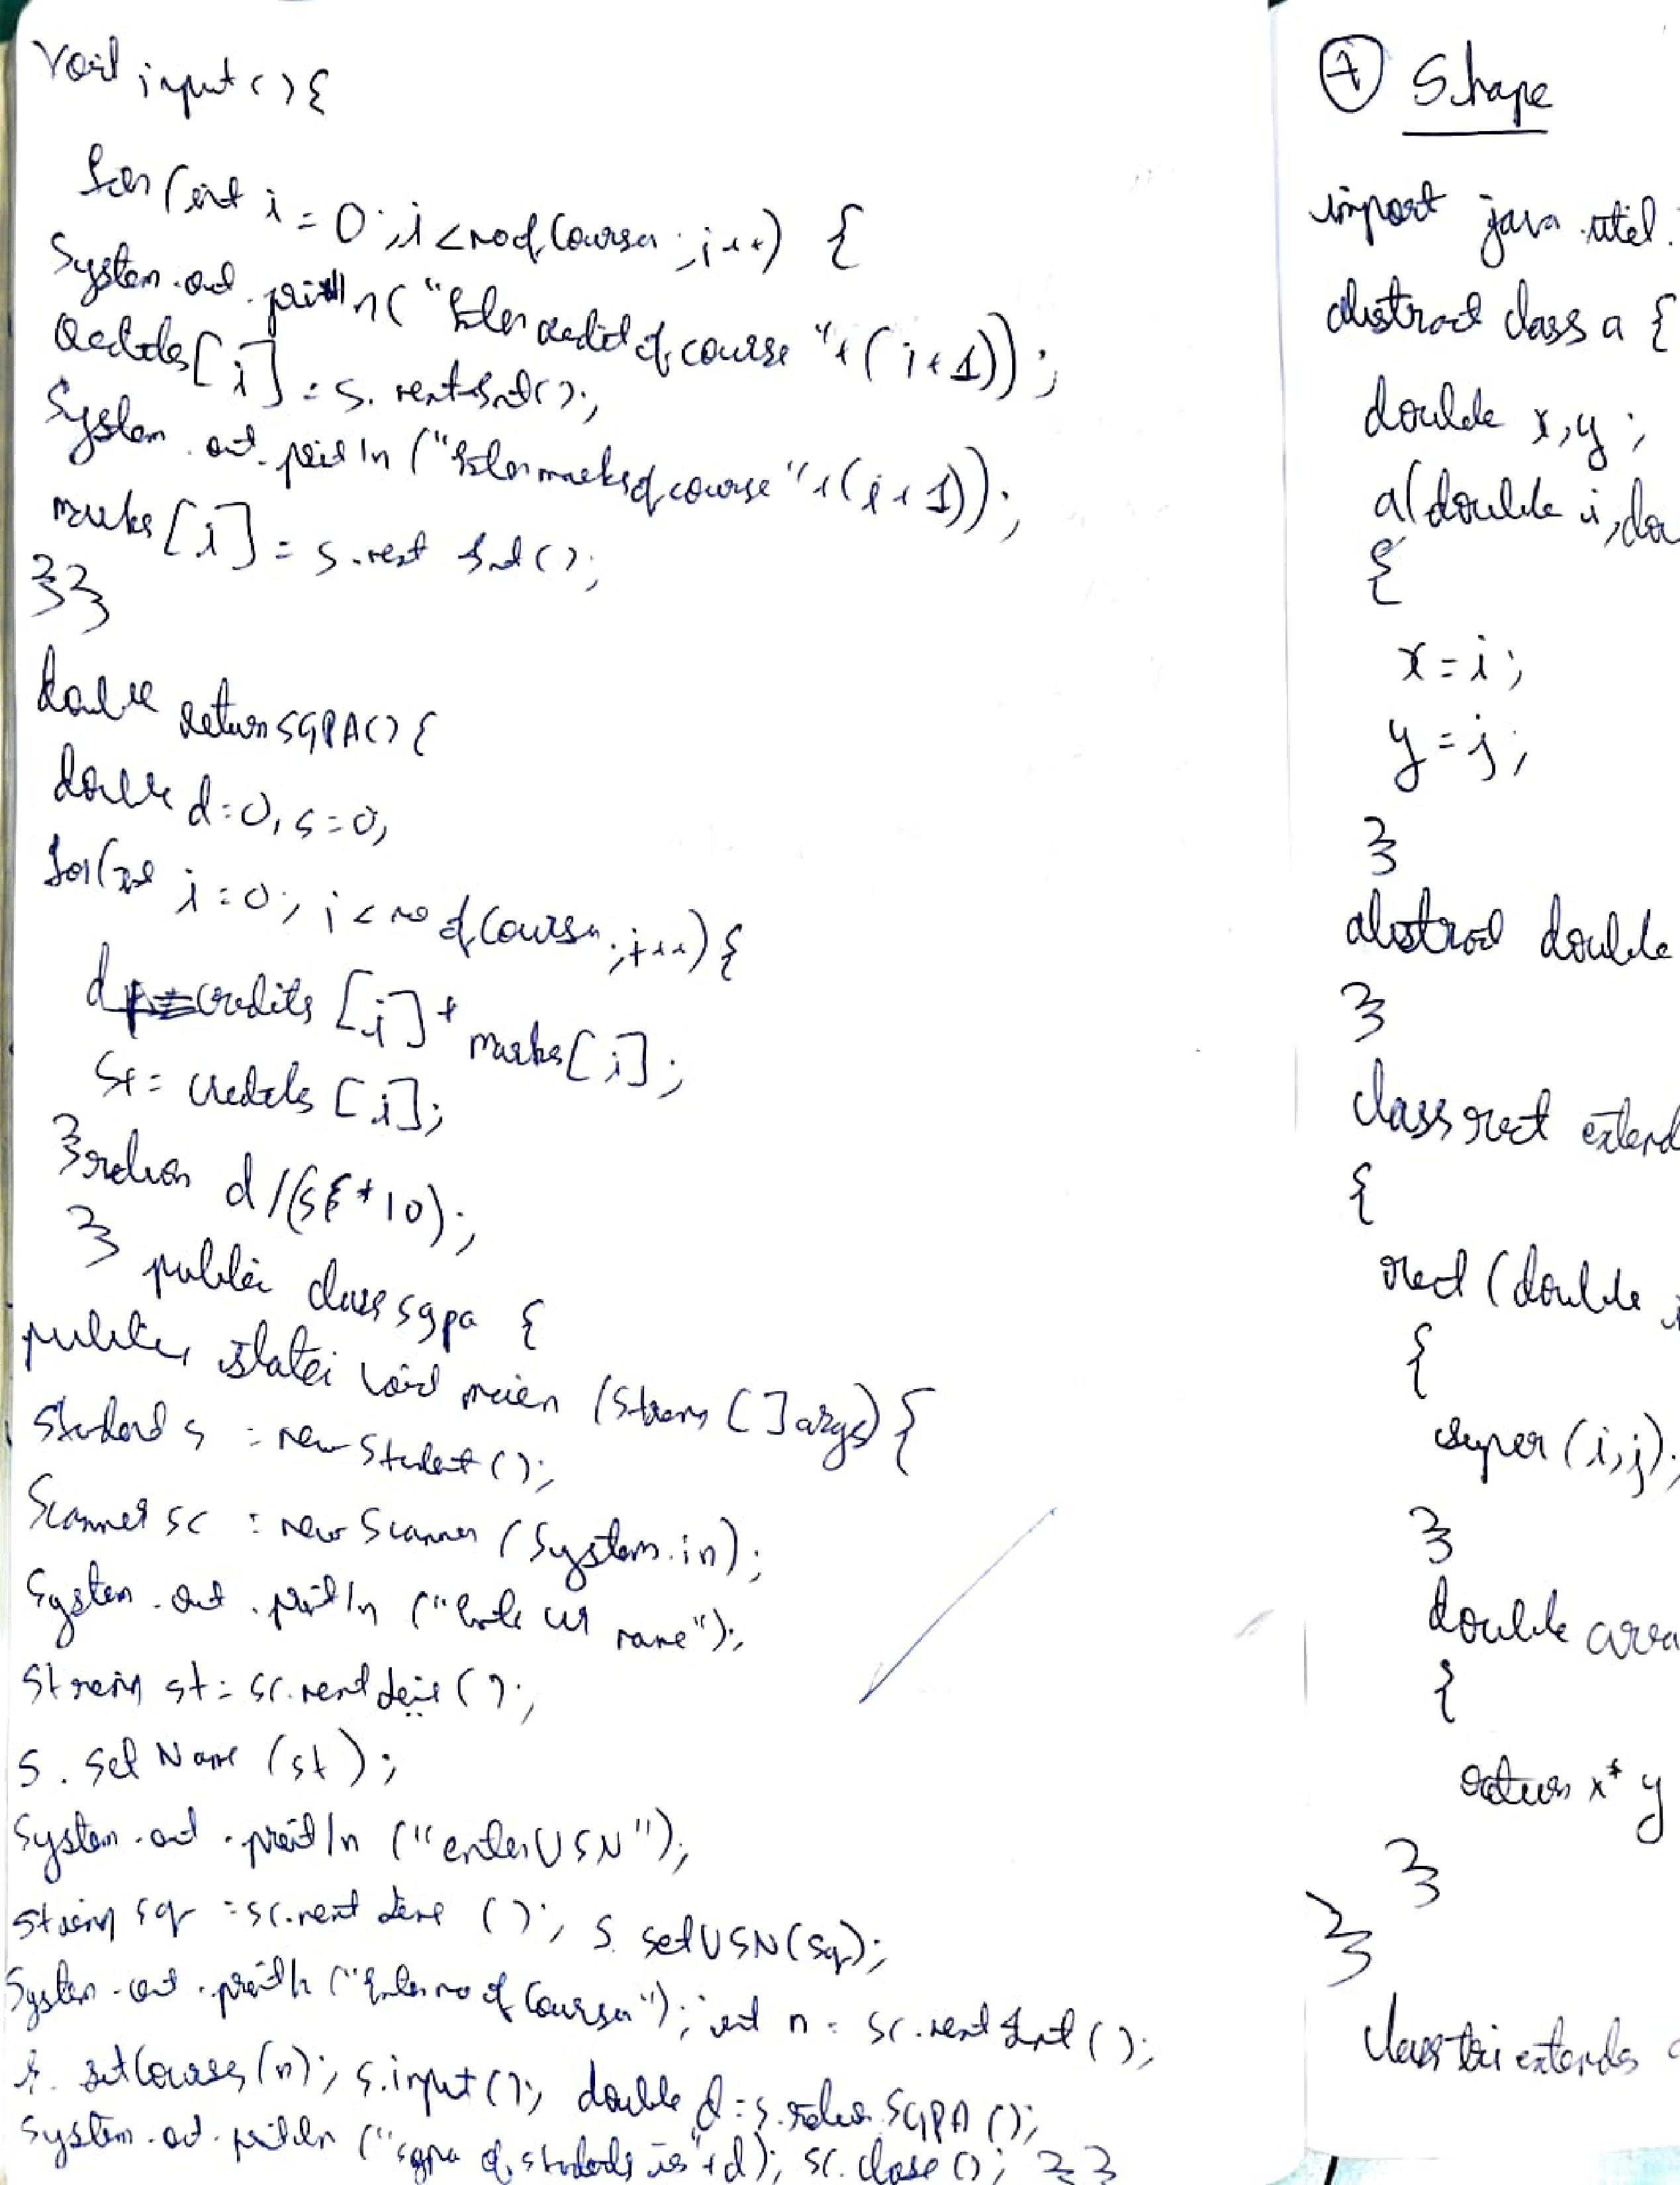 void input() {
for(int i=0; i<noofCourses; i++) {
System.out.println("Enter credit of course "+(i+1));
Credits[i] = s.nextInt();
System.out.println("Enter marks of course "+(i+1));
marks[i] = s.next Int();
}}
double returnSGPA() {
double d=0, s=0;
for(int i=0; i<no of Courses; i++) {
d+=credits[i]* marks[i];
s+= credits[i];
} return d/(s*10);
} public class sgpa {
public static void main (String []args) {
Student s = new Student();
Scanner sc = new Scanner (System.in);
System.out.println ("Enter ur name");
String st = sc.nextLine();
s. set Name (st);
System.out.println ("enter USN");
String sq = sc.next Line (); s. setUSN(sq);
System.out.println ("Enter no of Courses"); int n = sc.next Int ();
s. setCourses(n); s.input(); double d = s.return SGPA ();
System.out.println ("sgpa of students is"+d); sc.close(); }}
7 Shape
import java.util.
abstract class a {
double x,y;
a(double i, dou
{
x=i;
y=j;
}
abstract double
}
class rect extend
{
rect (double i
{
super (i,j);
}
double area
{
return x*y
}
}
class tri extends